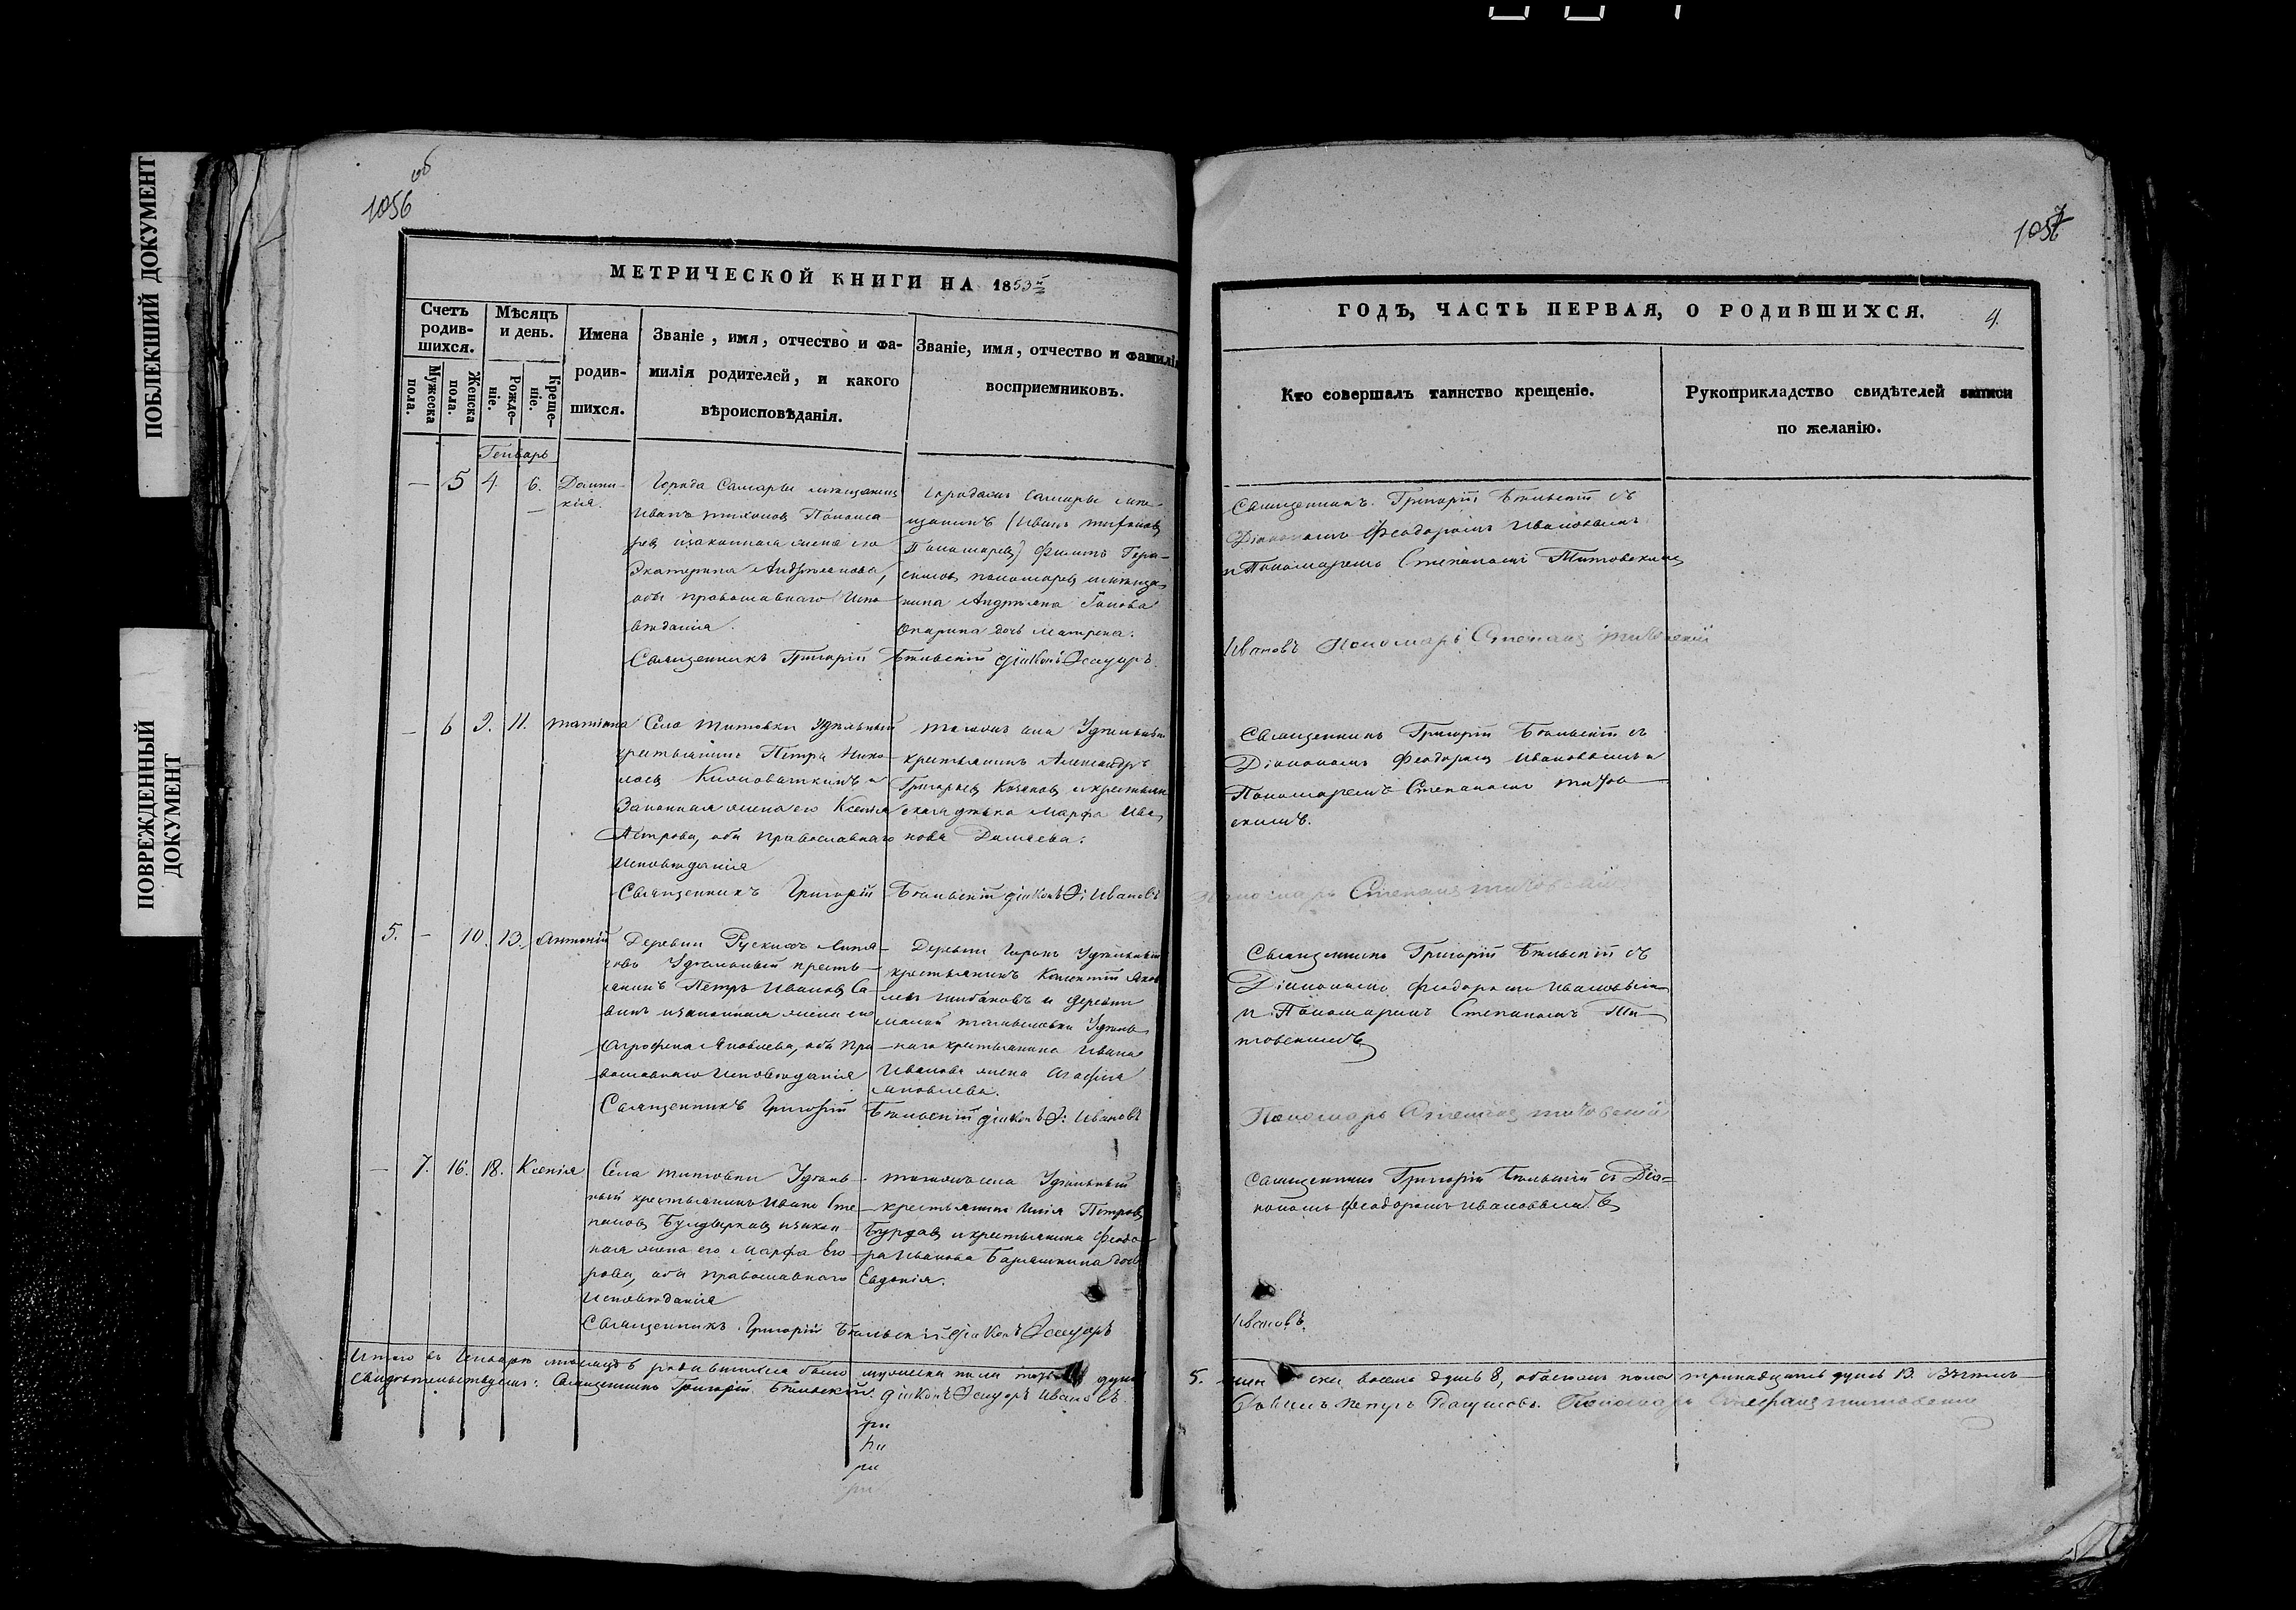 ПОБЛЕКШИЙ ДОКУМЕНТ
ПОВРЕЖДЕННЫЙ
ДОКУМЕНТ
об
1056
МЕТРИЧЕСКОЙ КНИГИ НА 1853й
Счетъ родив-шихся.
Мѣсяцъ и день.
Мужеска пола.
Женска пола.
Рожде-ніе.
Креще-ніе.
Имена родив-шихся.
Званіе, имя, отчество и фа-
милія родителей, и какого
вѣроисповѣданія.
Званіе, имя, отчество и фамилія
восприемниковъ.
Генварь
— 5 4. 6. Домни-
кія.
Города Самары мѣщанинъ
Иванъ Тихоновъ Понома-
ревъ и законная жена его
Екатерина Андреянова,
оба православнаго Испо
вѣданія.
Города Самары мѣ-
щанинъ (Иванъ Тихоновъ
Пономаревъ) Филипъ Гера-
симовъ Пономаревъ и мѣщан
нина Андреяна
дочь Матрена.
Священникъ Григорій Бѣльскій діаконъ Ѳеодоръ
— 6 9. 11. Татіана
Села Титовки Удѣльный
крестьянинъ Петръ Нико-
лаевъ и
Законная жена его Ксенія
Петрова, оба православнаго
Исповѣданія
того же села Удѣльный
крестьянинъ Александръ
Григорьевъ и крестьян
ская дѣвка Марфа Ива
нова
Священникъ Григорій Бѣльскій діаконъ Ѳ: Ивановъ
5. — 10. 13. Антоній
Деревни Рускихъ Липя-
говъ Удѣльный кресть-
янинъ Петръ Ивановъ Са-
винъ и законная жена его
Агрофена Яковлева, оба пра
вославнаго Исповѣданія
Деревни Удѣльный
крестьянинъ Яков
левъ и деревни
малой Удѣль
наго крестьянина Ивана
Иванова жена Агафия
Яковлева.
Священникъ Григорій Бѣльскій діаконъ Ѳ: Ивановъ
— 7. 16. 18. Ксенія
Села Титовки Удѣль-
ный крестьянинъ Иванъ Сте
пановъ и закон-
ная жена его Марфа Его
рова, оба православнаго
Исповѣданія
того же села Удѣльный
крестьянинъ Илія Петровъ
и крестьянина Феодо-
ра Иванова дочь
Евдокія.
Священникъ Григорій Бѣльскій діаконъ Ѳеодоръ
Итого въ Генварѣ мѣсяцѣ родившихся было мужеска пола пять душъ
Свидѣтельствуемъ: Священникъ Григорій Бѣльскій. діаконъ Ѳеодоръ Ивановъ.
1057
ГОДЪ, ЧАСТЬ ПЕРВАЯ, О РОДИВШИХСЯ.
4.
Кто совершалъ таинство крещеніе.
Рукоприкладство свидѣтелей записи
по желанію.
Священникъ Григорій Бѣльскій съ
Діакономъ Феодоромъ Ивановымъ
и Пономаремъ Степаномъ Титовскимъ
Ивановъ Пономарь Степанъ Титовскій
Священникъ Григорій Бѣльскій съ
Діакономъ Феодоромъ Ивановымъ и
Пономаремъ Степаномъ Титов
скимъ.
Пономарь Степанъ Титовскій
Священникъ Григорій Бѣльскій съ
Діакономъ Феодоромъ Ивановымъ
и Пономаремъ Степаномъ Ти
товскимъ
Пономарь Степанъ Титовскій
Священникъ Григорій Бѣльскій съ Діа=
кономъ Феодоромъ Ивановымъ
Ивановъ.
5. жен ска восемь душъ 8, обоего пола тринадцать душъ 13.
Пономарь Степанъ Титовскій